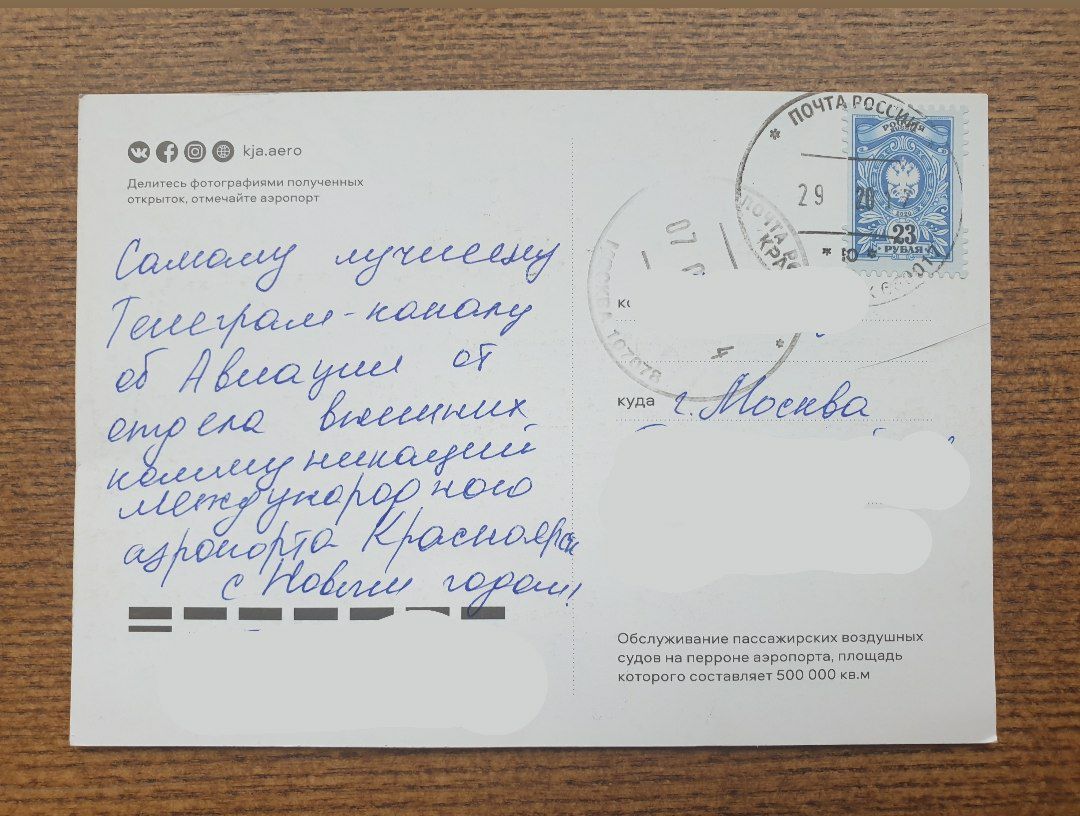 kja.aero
Делитесь фотографиями полученных
открыток, отмечайте аэропорт
Самому лучшему
Телеграм-каналу
об Авиации от
отдела внешних
коммуникаций
международного
аэропорта Красноярск
с Новым годом!
ПОЧТА РОССИИ
РОССИЯ
29
2020
23
РУБЛЯ
ПОЧТА РО
КРА
07
4
МОСКВА 107078
куда г. Москва
Обслуживание пассажирских воздушных
судов на перроне аэропорта, площадь
которого составляет 500 000 кв.м